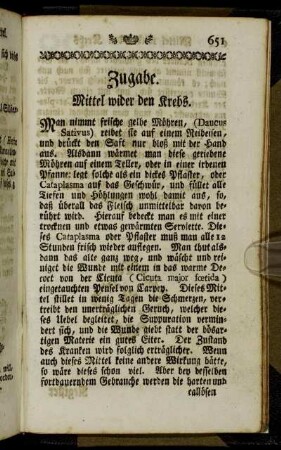 651
Zugabe.
Mittel wider den Krebs.
Man nimmt frische gelbe Möhren, (Daucus
Sativus) reibet sie auf einem Reibeisen,
und drückt den Saft nur bloß mit der Hand
aus. Alsdann wärmet man diese geriebene
Möhren auf einem Teller, oder in einer irdenen
Pfanne: legt solche als ein dickes Pflaster, oder
Cataplasma auf das Geschwür, und füllet alle
Tiefen und Höhlungen wohl damit aus, so,
daß überall das Fleisch unmittelbar davon be-
rührt wird. Hierauf bedeckt man es mit einer
trocknen und etwas gewärmten Serviette. Die-
ses Cataplasma oder Pflaster muß man alle 12
Stunden frisch wieder auflegen. Man thut als-
dann das alte ganz weg, und wäscht und rei-
niget die Wunde mit einem in das warme De-
coct von der Cicuta (Cicuta major foetida)
eingetauchten Pensel von Carpey. Dieses Mit-
tel stillet in wenig Tagen die Schmerzen, ver-
treibt den unerträglichen Geruch, welcher die-
ses Uebel begleitet, die Suppuration vermin-
dert sich, und die Wunde giebt statt der bösar-
tigen Materie ein gutes Eiter. Der Zustand
des Kranken wird folglich erträglicher. Wenn
auch dieses Mittel keine andere Wirkung hätte,
so wäre dieses schon viel. Aber bey desselben
fortdauerndem Gebrauche werden die harten und
callösen